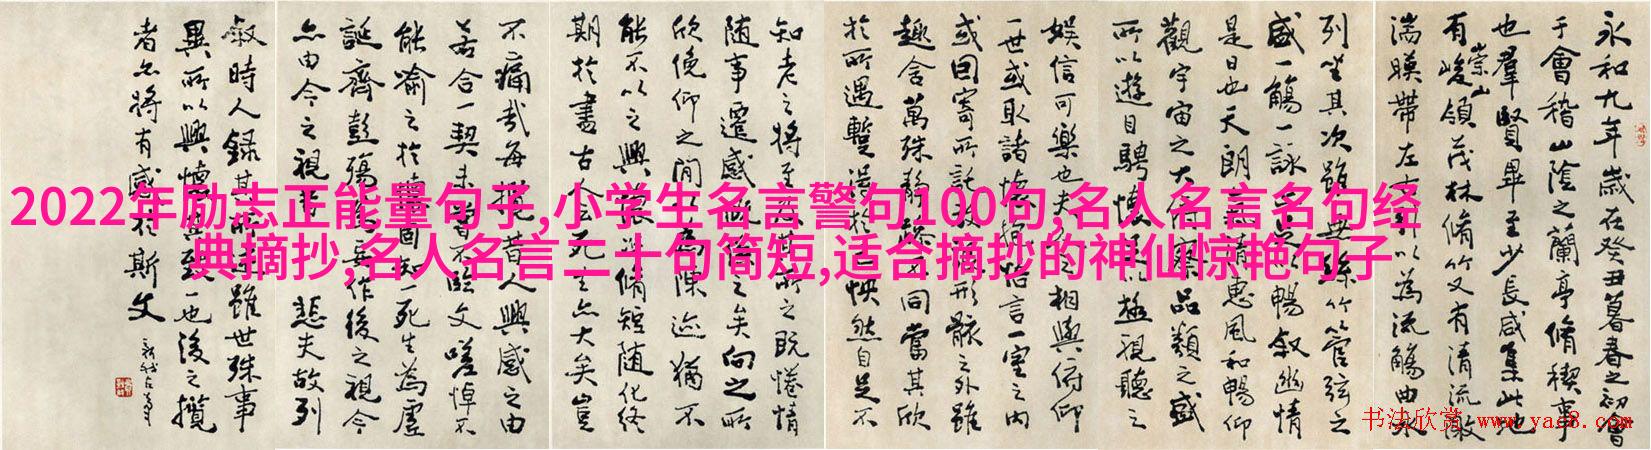 2022年励志正能量句子,小学生名言警句100句,名人名言名句经
典摘抄,名人名言二十句简短,适合摘抄的神仙惊艳句子
永和九年歲在癸丑暮春之初會
于會稽山陰之蘭亭脩稧事
也羣賢畢至少長咸集此地
有崇山峻領茂林脩竹又有清流激
湍暎帶左右引以為流觴曲水
列坐其次雖無絲竹管弦之
盛一觴一詠亦足以暢敘幽情
是日也天朗氣清惠風和暢仰
觀宇宙之大俯察品類之盛
所以遊目騁懷足以極視聽之
娛信可樂也夫人之相與俯仰
一世或取諸懷抱悟言一室之內
或因寄所託放浪形骸之外雖
趣舍萬殊靜躁不同當其欣
於所遇蹔得於己怏然自足不
知老之將至及其所之既惓情
隨事遷感慨係之矣向之所
欣俛仰之間以為陳迹猶不
能不以之興懷況脩短隨化終
期於盡古人云死生亦大矣豈
不痛哉每攬昔人興感之由
若合一契未嘗不臨文嗟悼不
能喻之於懷固知一死生為虛
誕齊彭殤為妄作後之視今
亦由今之視昔悲夫故列
敘時人錄其所述雖世殊事
異所以興懷其致一也後之攬
者亦將有感於斯文
书法欣赏 www.yac8.com